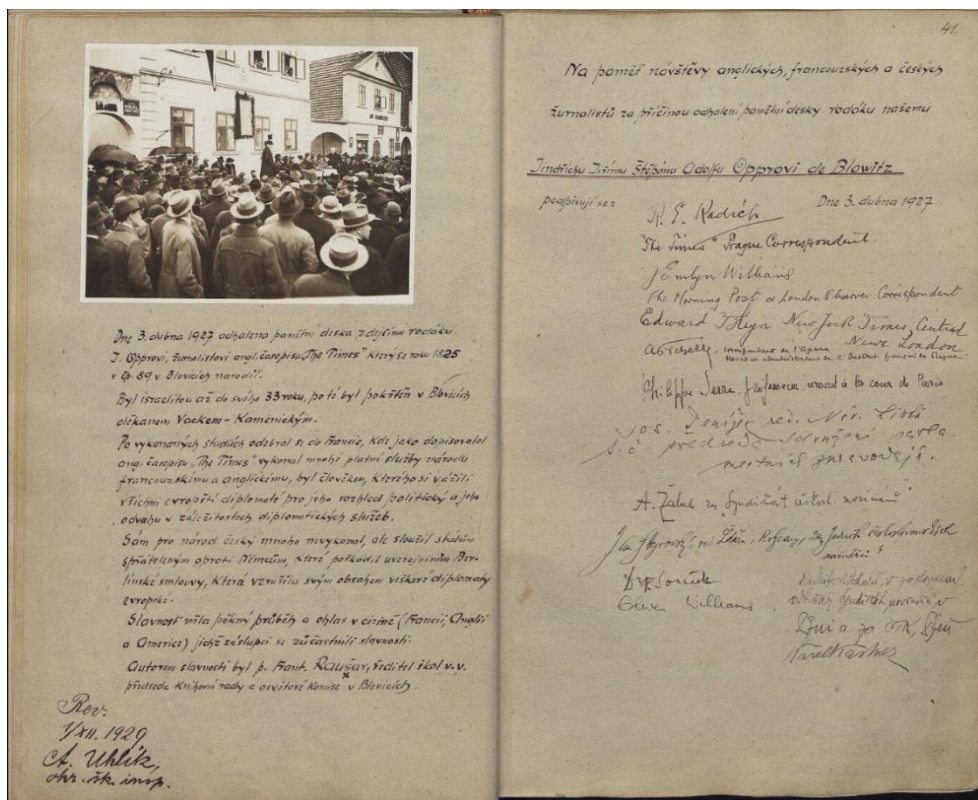 Dne 3. dubna 1927 odhalena pamětní deska zdejšímu rodáku
J. Opprovi, žurnalistovi angl. časopisu "The Times" který se roku 1825
v čp. 89 v Blovicích narodil.
Byl israelitou až do svého 33 roku, poté byl pokřtěn v Blovicích
děkanem Vackem-Kamenickým.
Po vykonaných studiích odebral se do Francie, kde jako dopisovatel
ang. časopisu "The Times" vykonal mnohé platné služby národu
francouzskému a anglickému, byl člověkem, kterého si vážili
všichni evropští diplomaté pro jeho rozhled politický a jeho
odvahu v záležitostech diplomatických služeb.
Sám pro národ český mnoho nevykonal, ale sloužil státům
spřáteleným oproti Němcům, které poškodil uveřejněním Ber-
línské smlouvy, která vzrušila svým obsahem veškeré diplomaty
evropské.
Slavnost měla pěkný průběh a ohlas v cizině (Francii, Anglii
a Americe) jichž zástupci se zúčastnili slavnosti.
Autorem slavnosti byl p. Frant. Raušar, ředitel škol v. v.
předseda knihovní rady a osvětové komise v Blovicích.
Rev.
1/XII. 1929
A. Uhlík,
okr. šk. insp.
41.
Na paměť návštěvy anglických, francouzských a českých
žurnalistů za příčinou odhalení pamětní desky rodáku našemu
Jindřichu Jiřímu Štěpánu Adolfu Opprovi de Blowitz
podpisují se: Dne 3. dubna 1927
R. E. Kadich
"The Times" Prague Correspondent.
J Emlyn Williams
The Morning Post & London Observer Correspondent
Edward J. Heyn New York Times, Central
News London
correspondant de l'Agence
Havas et administrateur de l'Institut français de Prague
Philippe Serre, professeur avocat à la cour de Paris
Jos. Penížek red. Nár. Listů
A. Žalud za Syndikát českosl. novinářů
novinářů
Dr F. Soucek
Olwen Williams
Plzni a za ČTK, Plzeň
Karel Kastner